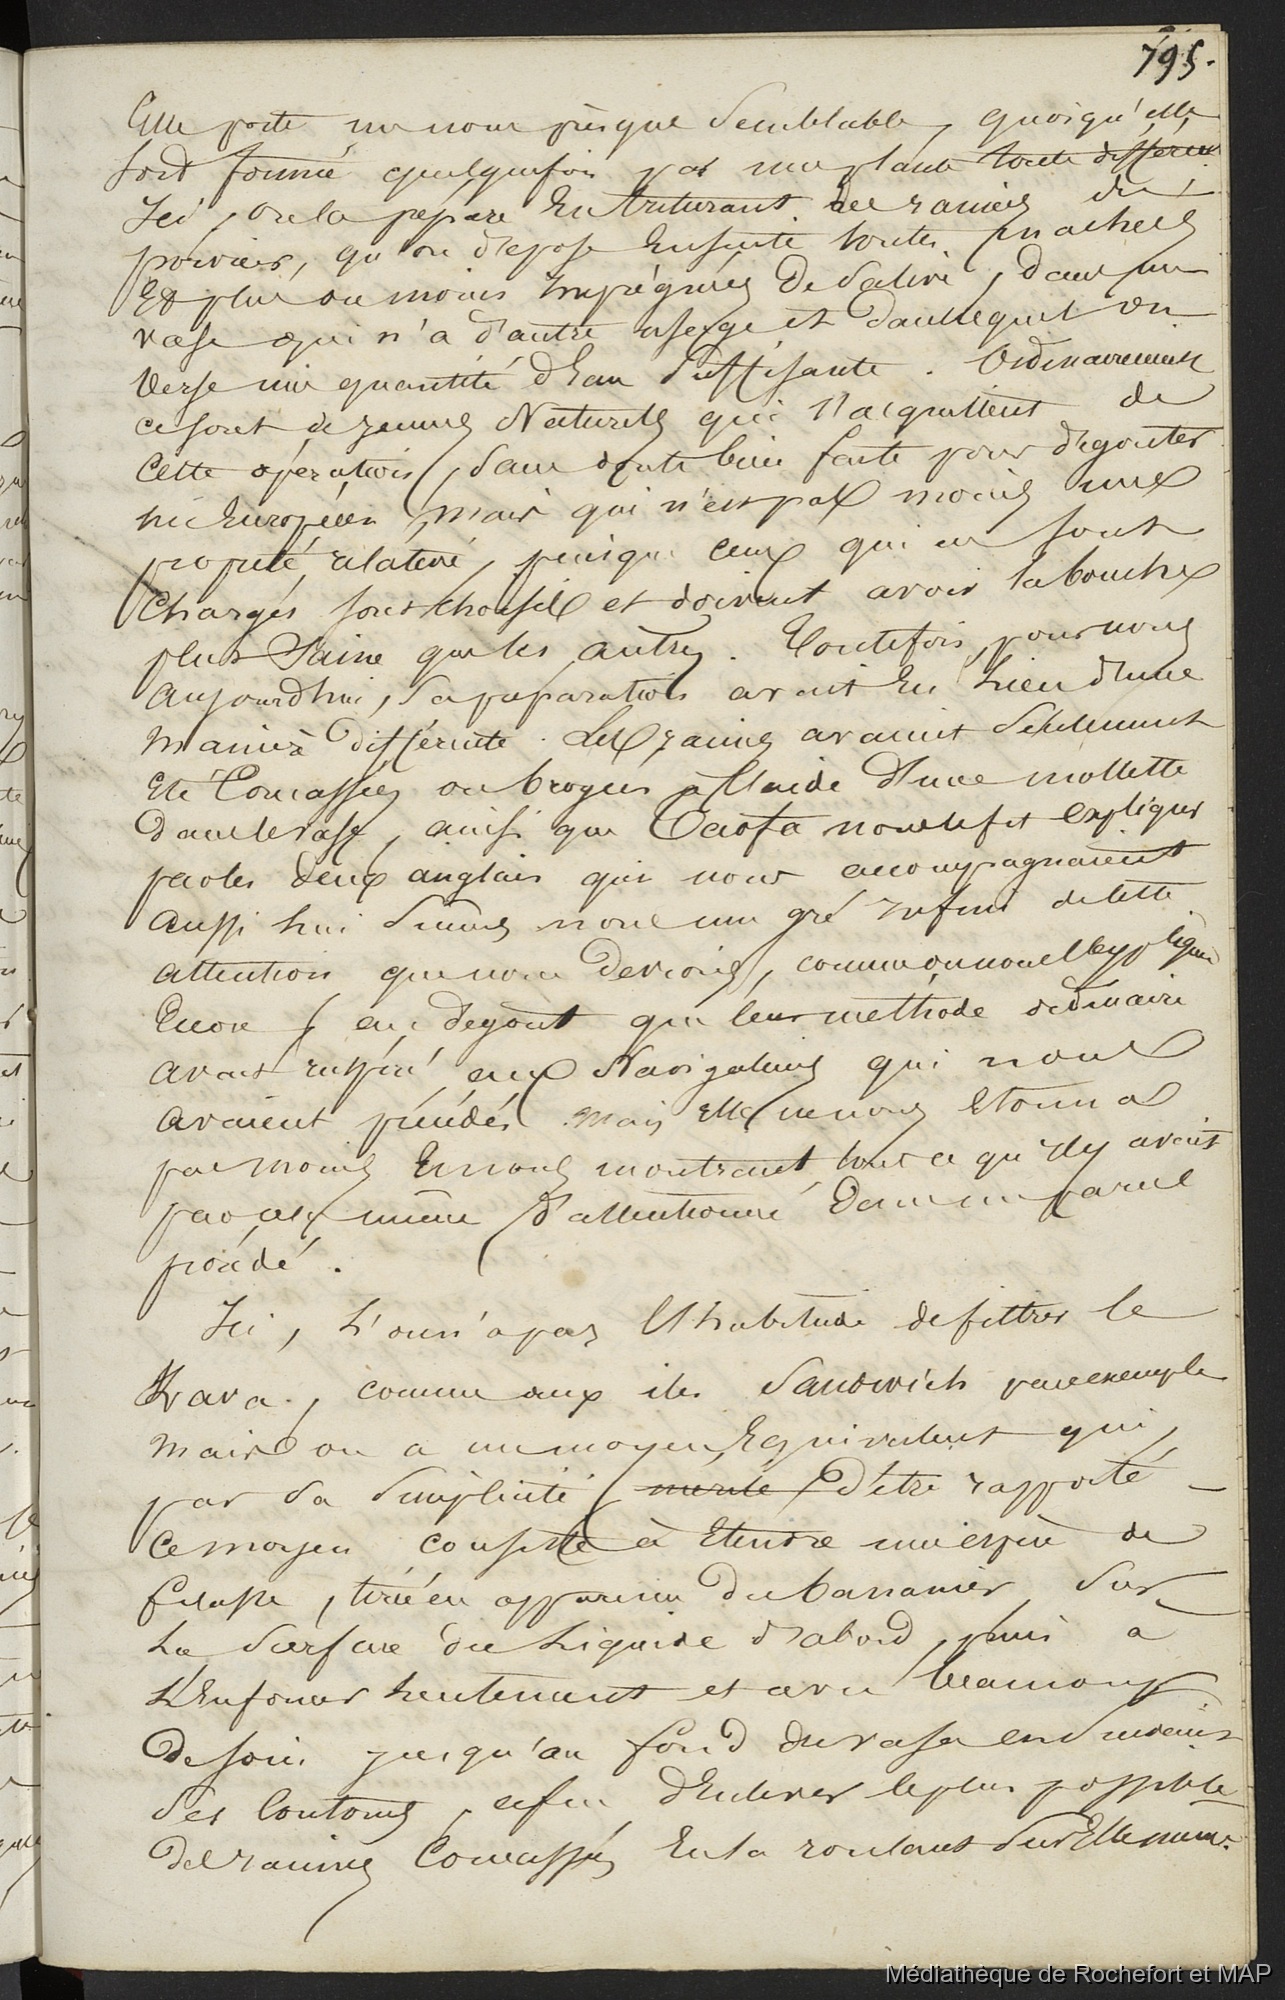 795.
Elle porte un nom presque semblable, quoiqu'elle
soit formée quelquefois par une plante toute différen.
Ici, on la prépare en triturant des racines du
poivrier, qu'on dépose ensuite toutes machées
Et plus ou moins imprégnées de salive, dans un
vase qui n'a d'autre usage et dans lequel on
verse une quantité d'Eau suffisante. Ordinairement
ce sont de jeunes Naturels qui s'acquittent de
cette opération, sans doute bien faite pour dégouter
un Européen, mais qui n'est pas moins une
propreté relative, puisque ceux qui en sont
chargés sont choisis et doivent avoir la bouche
plus saine que les autres. Toutefois, pour nous
aujourdhui, sa préparation avait eu lieu d'une
manière différente. Les racines avaient seulement
Eté Concassées ou broyées à l'aide d'une mollette
dans le vase, ainsi que nous le fit expliquer
par les deux anglais qui nous accompagnaient
aussi lui sumes nous un gré infini de cette
attention que nous devions, comme on nous l'expliqua
Encore, au dégout que leur méthode ordinaire
avait inspiré aux Navigateurs qui nous
avaient précédés. Mais Elle ne nous Etonna
pas moins En nous montrant tout ce qu'il y avait
par là même d'attentionné dans un pareil
procédé.
Ici, l'on n'a pas l'habitude de filtrer le
Kava, comme aux iles Sandwich par exemple
Mais on a un moyen Equivalent qui,
par sa simplicité, mérite d'être rapporté
Ce moyen consiste à Etendre une espèce de
filasse, tirée en apparence du bananier, sur
la surface du liquide d'abord, puis a
l'Enfoncer lentement et avec beaucoup
de soin jusqu'au fond du vase en suivant
ses Contours, afin d'Enlever le plus possible
de racines Concassées En la roulant sur Elle même.
Médiathèque de Rochefort et MAP